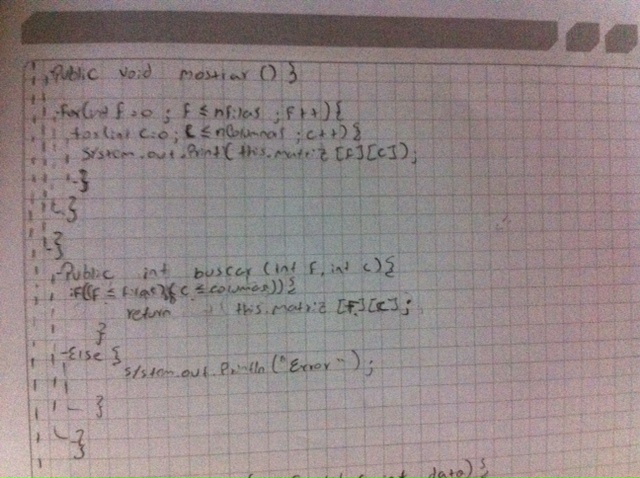 Public void mostrar () }
for(int f=0 ; f ≤ nfilas ; f++){
for(int c=0 ; c ≤ ncolumnas ; c++){
System.out.Print(this.matriz [f][c]);
}
}
}
Public int buscar (int f, int c) {
if((f ≤ filas)(c ≤ columnas)){
return (this.matriz [f][c];
}
Else {
System.out.Println("Error");
}
}
data){